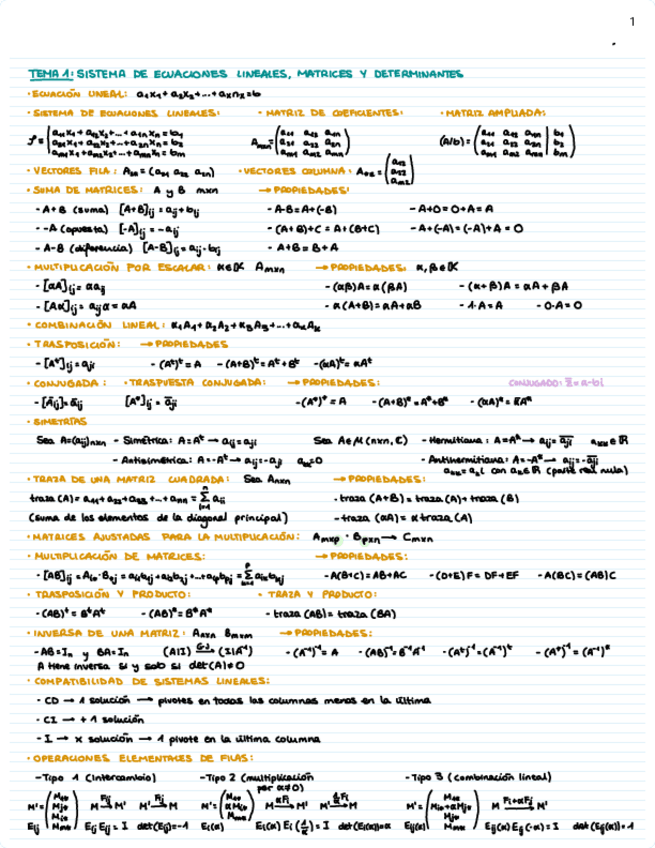 1
TEMA 1: SISTEMA DE ECUACIONES LINEALES, MATRICES Y DETERMINANTES
· ECUACIÓN LINEAL: a₁x₁ + a₂x₂ + ... + aₙxₙ = b
· SISTEMA DE ECUACIONES LINEALES: · MATRIZ DE COEFICIENTES: · MATRIZ AMPLIADA:
a₁₁x₁ + a₁₂x₂ + ... + a₁ₙxₙ = b₁
a₂₁x₁ + a₂₂x₂ + ... + a₂ₙxₙ = b₂
aₘ₁x₁ + aₘ₂x₂ + ... + aₘₙxₙ = bₘ
(A/b) =
· VECTORES FILA: · VECTORES COLUMNA:
· SUMA DE MATRICES: A y B mxn → PROPIEDADES:
- A+B (suma) [A+B]ij = aij + bij - A-B = A+(-B) - A+0 = 0+A = A
- -A (opuesta) [-A]ij = -aij - (A+B)+C = A+(B+C) - A+(-A) = (-A)+A = 0
- A-B (diferencia) [A-B]ij = aij - bij - A+B = B+A
· MULTIPLICACIÓN POR ESCALAR: α∈K Amxn → PROPIEDADES: α,β∈K
- [αA]ij = αaij - (αβ)A = α(βA) - (α+β)A = αA + βA
- [Aα]ij = aijα = αA - α(A+B) = αA + αB - 1·A = A - 0·A = 0
· COMBINACIÓN LINEAL: α₁A₁ + α₂A₂ + α₃A₃ + ... + αₖAₖ
· TRASPOSICIÓN: → PROPIEDADES
- [Aᵗ]ij = aji - (Aᵗ)ᵗ = A - (A+B)ᵗ = Aᵗ + Bᵗ - (αA)ᵗ = αAᵗ
· CONJUGADA: · TRASPUESTA CONJUGADA: → PROPIEDADES: CONJUGADO: z̄ = a-bi
- [Āij] = āij [A*]ij = āji - (A*)* = A - (A+B)* = A* + B* - (αA)* = ᾱA*
· SIMETRÍAS
Sea A=(aij)nxn - Simétrica: A = Aᵗ → aij = aji Sea A∈M(nxn, C) - Hermitiana: A = A* → aij = āji akk∈R
- Antisimétrica: A = -Aᵗ → aij = -aji akk = 0 - Antihermitiana: A = -A* → aij = -āji
(parte real nula)
· TRAZA DE UNA MATRIZ CUADRADA: Sea Anxn → PROPIEDADES:
traza(A) = a₁₁ + a₂₂ + a₃₃ + ... + aₙₙ = Σ aii · traza (A+B) = traza(A) + traza (B)
(suma de los elementos de la diagonal principal) - traza (αA) = α traza(A)
· MATRICES AJUSTADAS PARA LA MULTIPLICACIÓN: Amxp · Bpxn → Cmxn
· MULTIPLICACIÓN DE MATRICES: → PROPIEDADES:
- A(B+C) = AB+AC - (D+E)F = DF+EF - A(BC) = (AB)C
· TRASPOSICIÓN Y PRODUCTO: · TRAZA Y PRODUCTO:
- (AB)ᵗ = BᵗAᵗ - (AB)* = B*A* - traza (AB) = traza (BA)
· INVERSA DE UNA MATRIZ: → PROPIEDADES:
- AB = Iₙ y BA = Iₙ (A|I) → (I|A⁻¹) - (A⁻¹)⁻¹ = A - (AB)⁻¹ = B⁻¹A⁻¹ - (Aᵗ)⁻¹ = (A⁻¹)ᵗ - (A*)⁻¹ = (A⁻¹)*
A tiene inversa si y solo si det(A)≠0
· COMPATIBILIDAD DE SISTEMAS LINEALES:
- CD → 1 solución → pivotes en todas las columnas menos en la última
- CI → +1 solución
- I → x solución → 1 pivote en la última columna
· OPERACIONES ELEMENTALES DE FILAS:
- Tipo 1 (Intercambio) - Tipo 2 (multiplicación por α≠0) - Tipo 3 (combinación lineal)
Eij Eij Eij = I det(Eij) = -1 Ei(α) Ei(α) Ei(1/α) = I det(Ei(α)) = α Eij(α) Eij(α) Eij(-α) = I det(Eij(α)) = 1